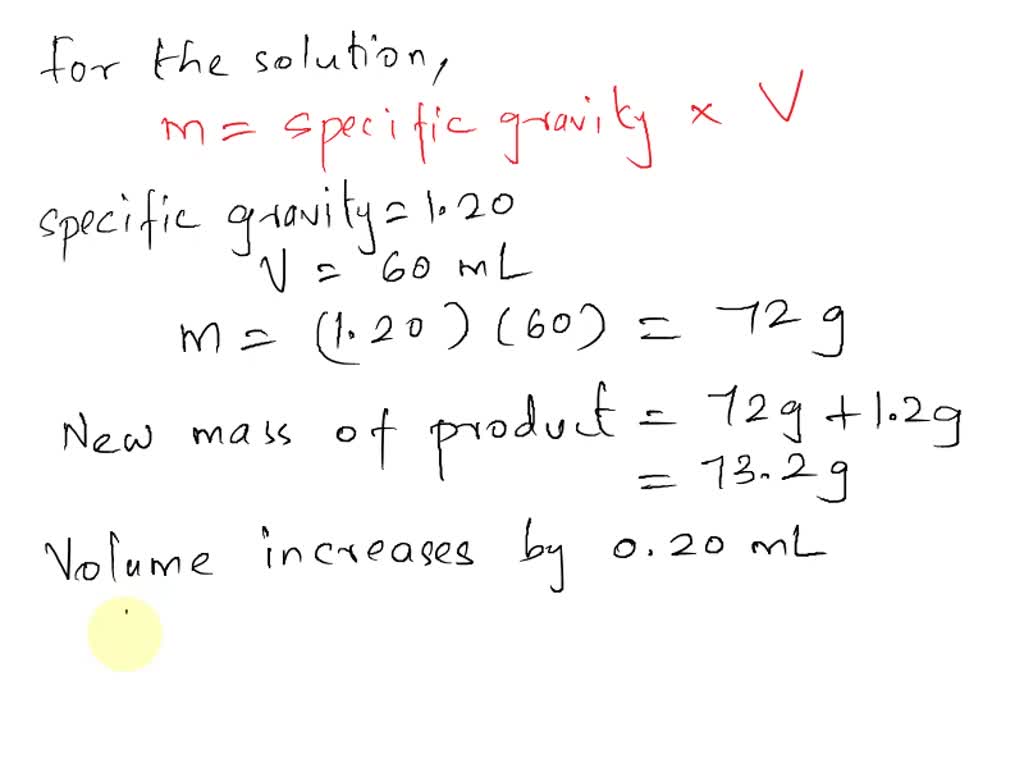 for the solution,
m = specific gravity × V
specific gravity = 1.20
V = 60 mL
m = (1.20) (60) = 72 g
New mass of product = 72g + 1.2g
= 73.2g
Volume increases by 0.20 mL